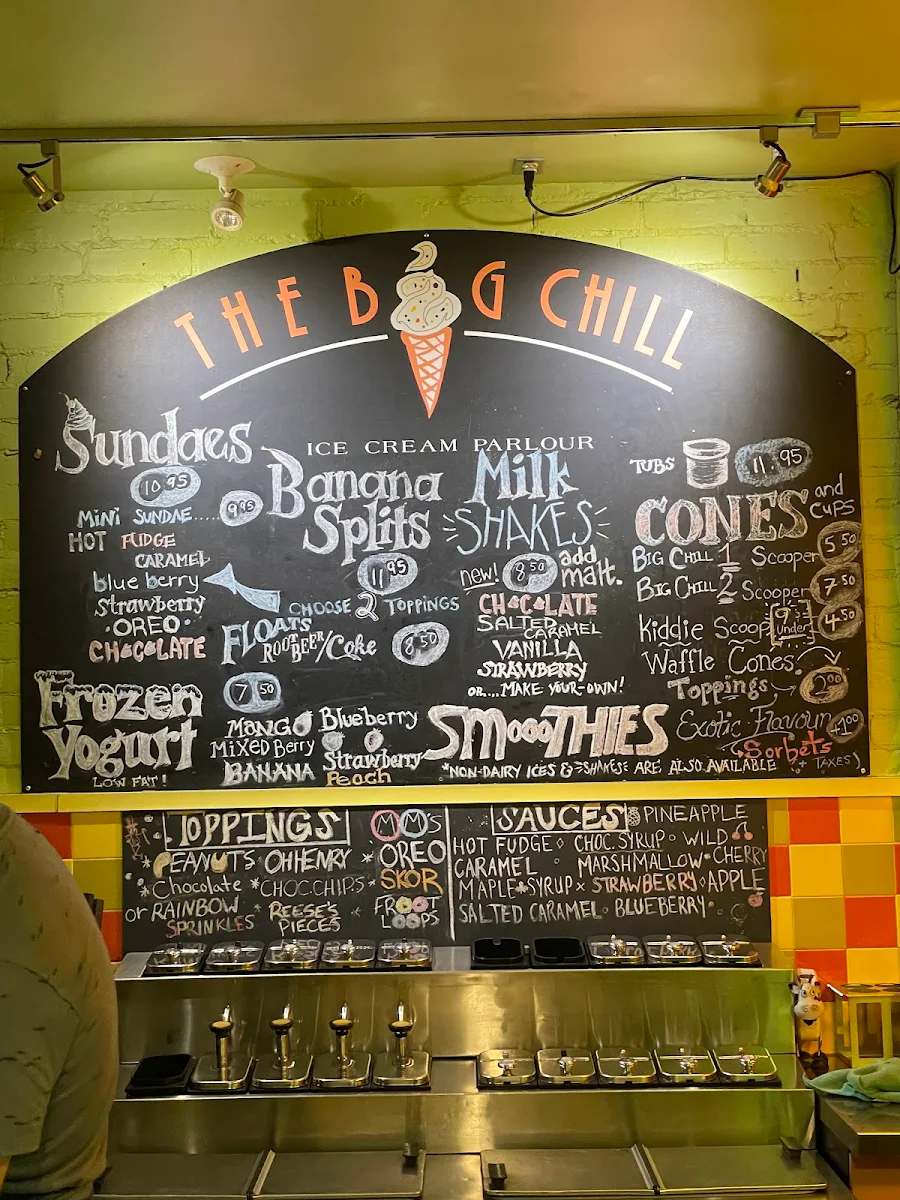 THE BIG CHILL
ICE CREAM PARLOUR
Sundaes
10.95
MiNi SUNDAE..... 9.95
HOT FUDGE
CARAMEL
blueberry
Strawberry
·OREO·
CHOCOLATE
Banana
Splits
11.95
CHOOSE 2 TOPPINGS
FLOATS
ROOTBEER/Coke 8.50
Milk
SHAKES
new! 8.50 add malt.
CHOCOLATE
SALTED CARAMEL
VANILLA
STRAWBERRY
OR...MAKE YOUR-OWN!
TUBS 11.95
CONES and cups
BIG CHILL 1 Scooper 5.50
BIG CHILL 2 Scooper 7.50
kiddie Scoop 9 & under 4.50
Waffle Cones
Toppings 2.00
Exotic Flavour +1.00
Sorbets
(+ TAXES)
Frozen
Yogurt
LOW FAT!
7.50
MANGO Blueberry
MiXED Berry
Strawberry
BANANA Peach
SMOOOTHIES
*NON-DAIRY ICES & SHAKES ARE ALSO AVAILABLE
TOPPINGS
PEANUTS OH HENRY
*Chocolate *CHOC.CHIPS*
or RAINBOW
SPRINKLES REESE'S
PIECES
M&M'S
OREO
SKOR
FROOT
LOOPS
SAUCES PINEAPPLE
HOT FUDGE CHOC.SYRUP WILD
CARAMEL MARSHMALLOW CHERRY
MAPLE SYRUP STRAWBERRY APPLE
SALTED CARAMEL BLUEBERRY